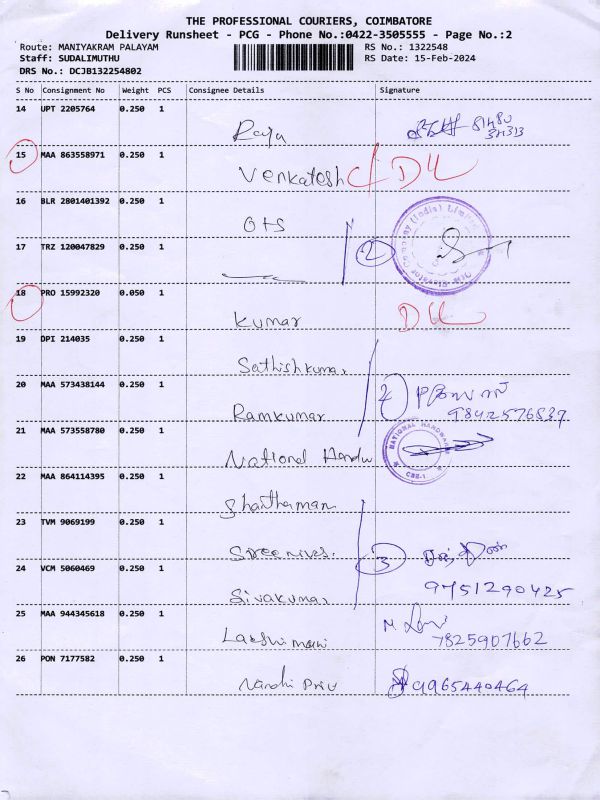 THE PROFESSIONAL COURIERS, COIMBATORE
Delivery Runsheet - PCG - Phone No.:0422-3505555 - Page No.:2
Route: MANIYAKRAM PALAYAM RS No.: 1322548
Staff: SUDALIMUTHU RS Date: 15-Feb-2024
DRS No.: DCJB132254802
S No Consignment No Weight PCS Consignee Details Signature
14 UPT 2205764 0.250 1
Raja
15 MAA 863558971 0.250 1
Venkatesh C/ DL
16 BLR 2801401392 0.250 1
OTS
17 TRZ 120047829 0.250 1
2
18 PRO 15992320 0.050 1
Kumar DL
19 DPI 214035 0.250 1
Sathishkumar
20 MAA 573438144 0.250 1
2
Ramkumar 9842576839
21 MAA 573558780 0.250 1
NATIONAL HARDWARE
National Hardw
CBE-1
22 MAA 864114395 0.250 1
Shanthamani
23 TVM 9069199 0.250 1
Sreenives. 3
24 VCM 5060469 0.250 1
9751290425
Sivakumar
25 MAA 944345618 0.250 1
Lakshi mani 7825907662
26 PON 7177582 0.250 1
Nandhi Priu 9965440464